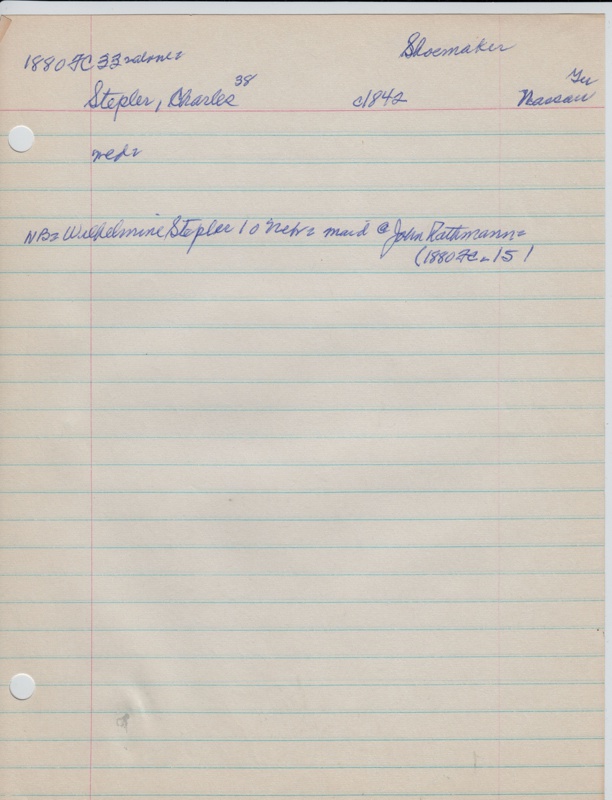 Shoemaker
1880 FC 33 alone=
Stepler, Charles 38 c1842 Nassau
NB= Wilhelmine Stepler 10 Nebr= maid @ John Rathmann=
(1880 FC=15)